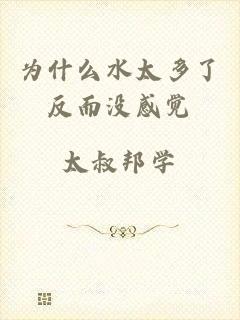 为什么水太多了
反而没感觉
太叔邦学